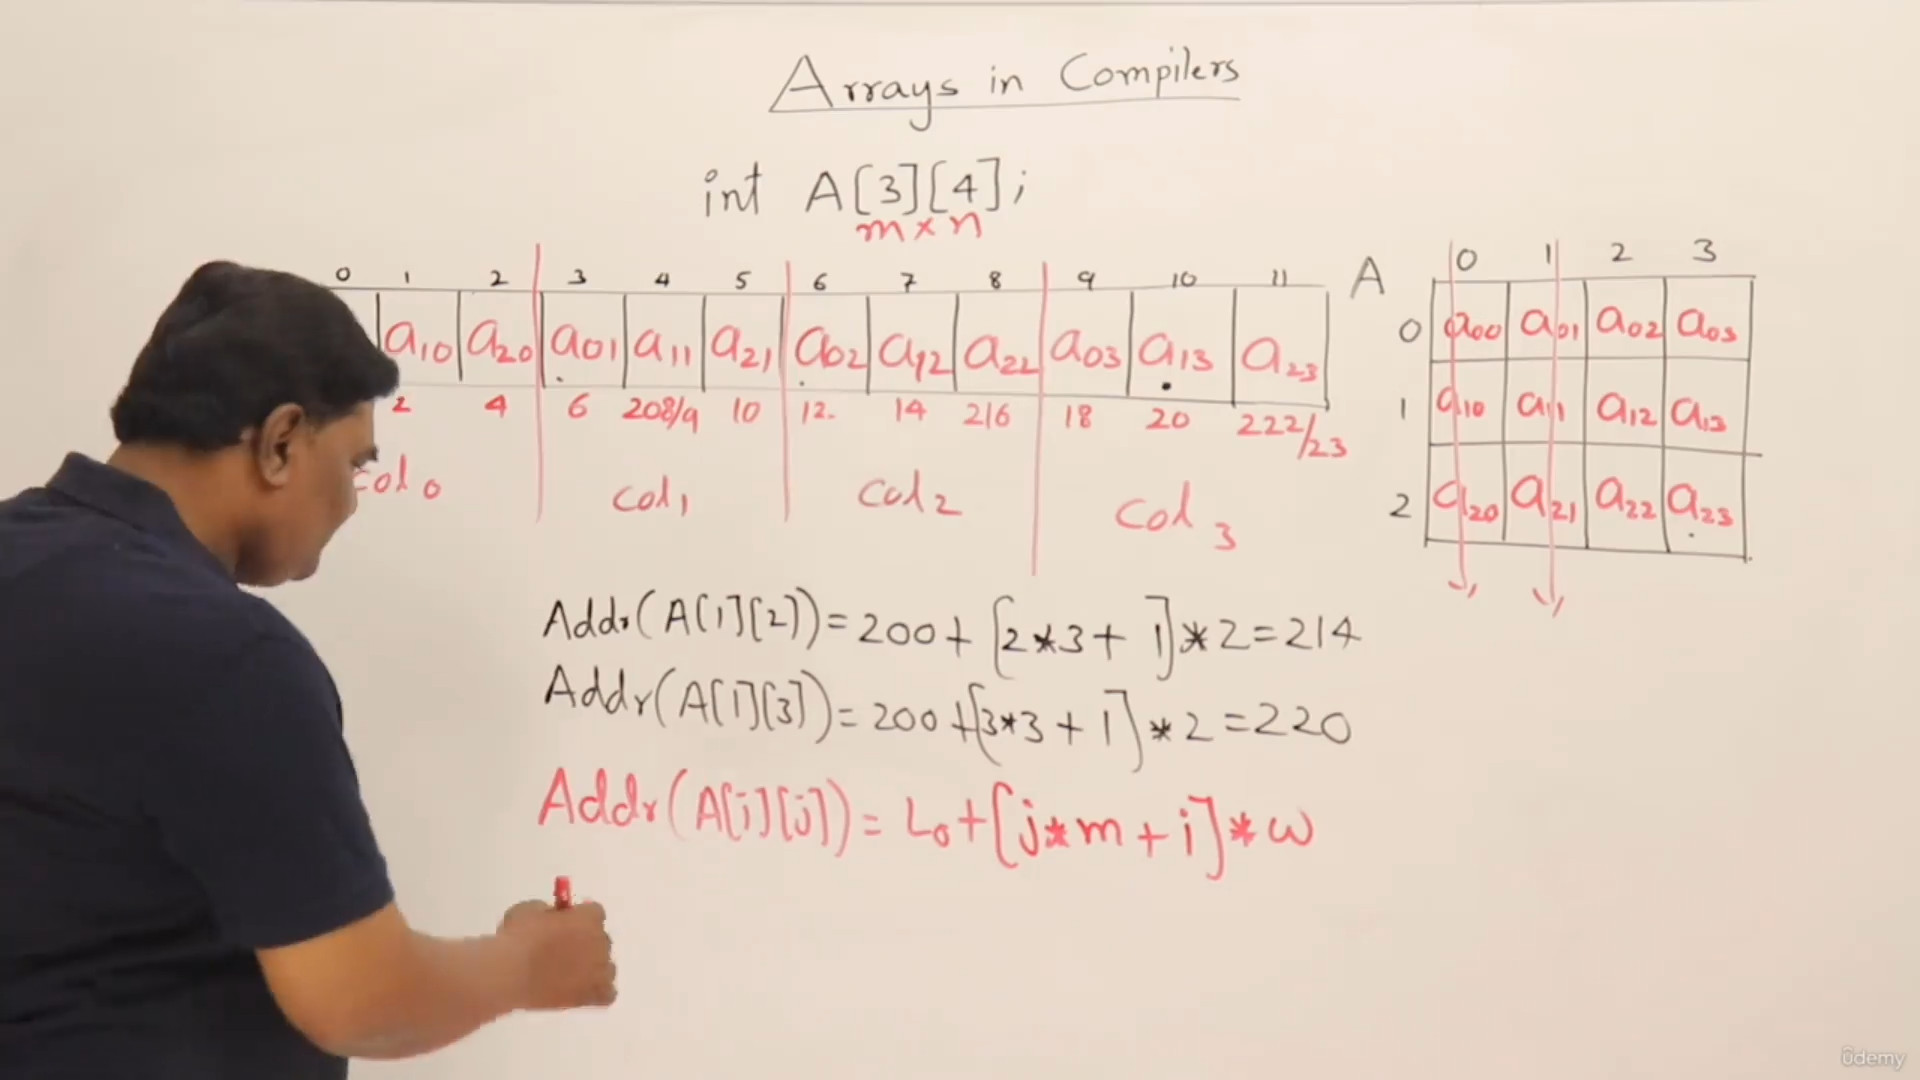 Arrays in Compilers
int A[3][4];
m × n
0 1 2 3 4 5 6 7 8 9 10 11
a10 a20 a01 a11 a21 a02 a12 a22 a03 a13 a23
2 4 6 208/9 10 12 14 216 18 20 222/23
col 0 col 1 col 2 col 3
A 0 1 2 3
0 a00 a01 a02 a03
1 a10 a11 a12 a13
2 a20 a21 a22 a23
Addr(A[1][2]) = 200 + [2*3 + 1] * 2 = 214
Addr(A[1][3]) = 200 + [3*3 + 1] * 2 = 220
Addr(A[i][j]) = L0 + [j*m + i] * w
ûdemy